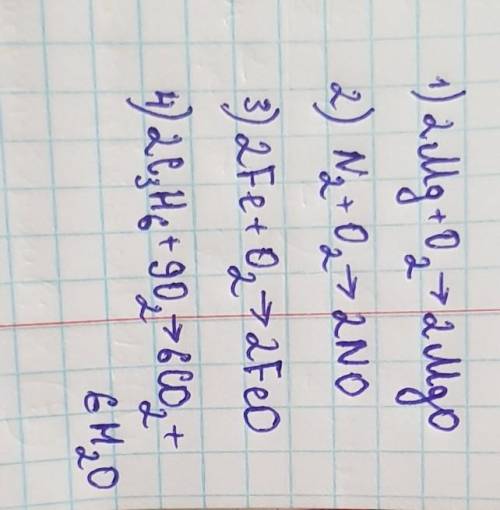 1) 2Mg + O₂ → 2MgO
2) N₂ + O₂ → 2NO
3) 2Fe + O₂ → 2FeO
4) 2C₃H₆ + 9O₂ → 6CO₂ +
6H₂O